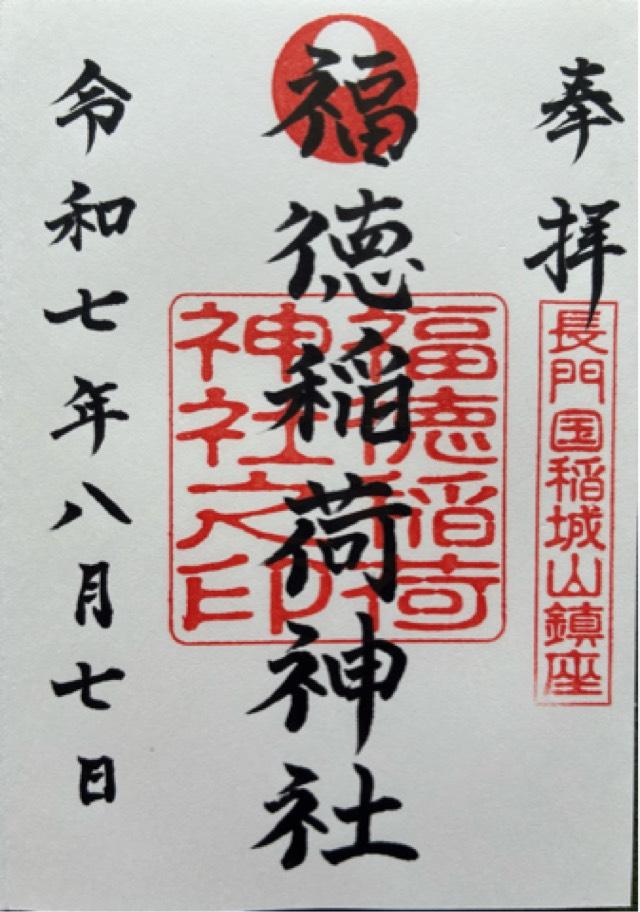 奉拝
長門国稲城山鎮座
福徳稲荷神社
福徳稲荷
神社之印
令和七年八月七日